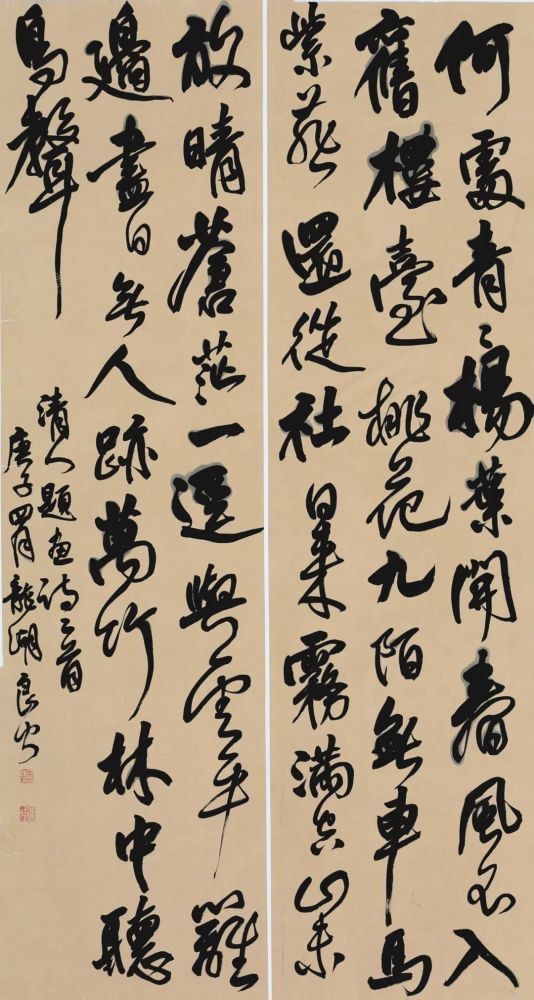 何處青々楊葉開春風不入
舊樓臺桃花九陌無車馬
紫燕還從社日來霧滿空山未
放晴蒼茫一逕與雲平籬
邊盡日無人跡萬竹林中聽
鳥聲
清人題畫詩二首
庚子四月龍湖良